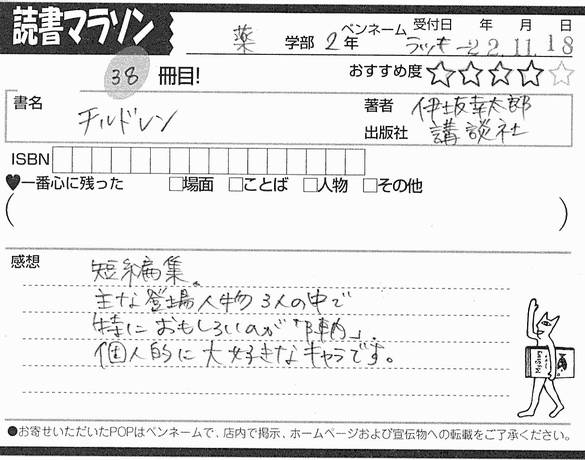 読書マラソン
薬 学部 2年 ペンネーム ラッキー 受付日 22年 11月 18日
38 冊目! おすすめ度 ☆☆☆☆☆
書名 チルドレン
著者 伊坂幸太郎
出版社 講談社
ISBN
♥一番心に残った □場面 □ことば □人物 □その他
( )
感想
短編集。
主な登場人物3人の中で
特におもしろいのが「陣内」。
個人的に大好きなキャラです。
●お寄せいただいたPOPはペンネームで、店内で掲示、ホームページおよび宣伝物への転載をご了承ください。